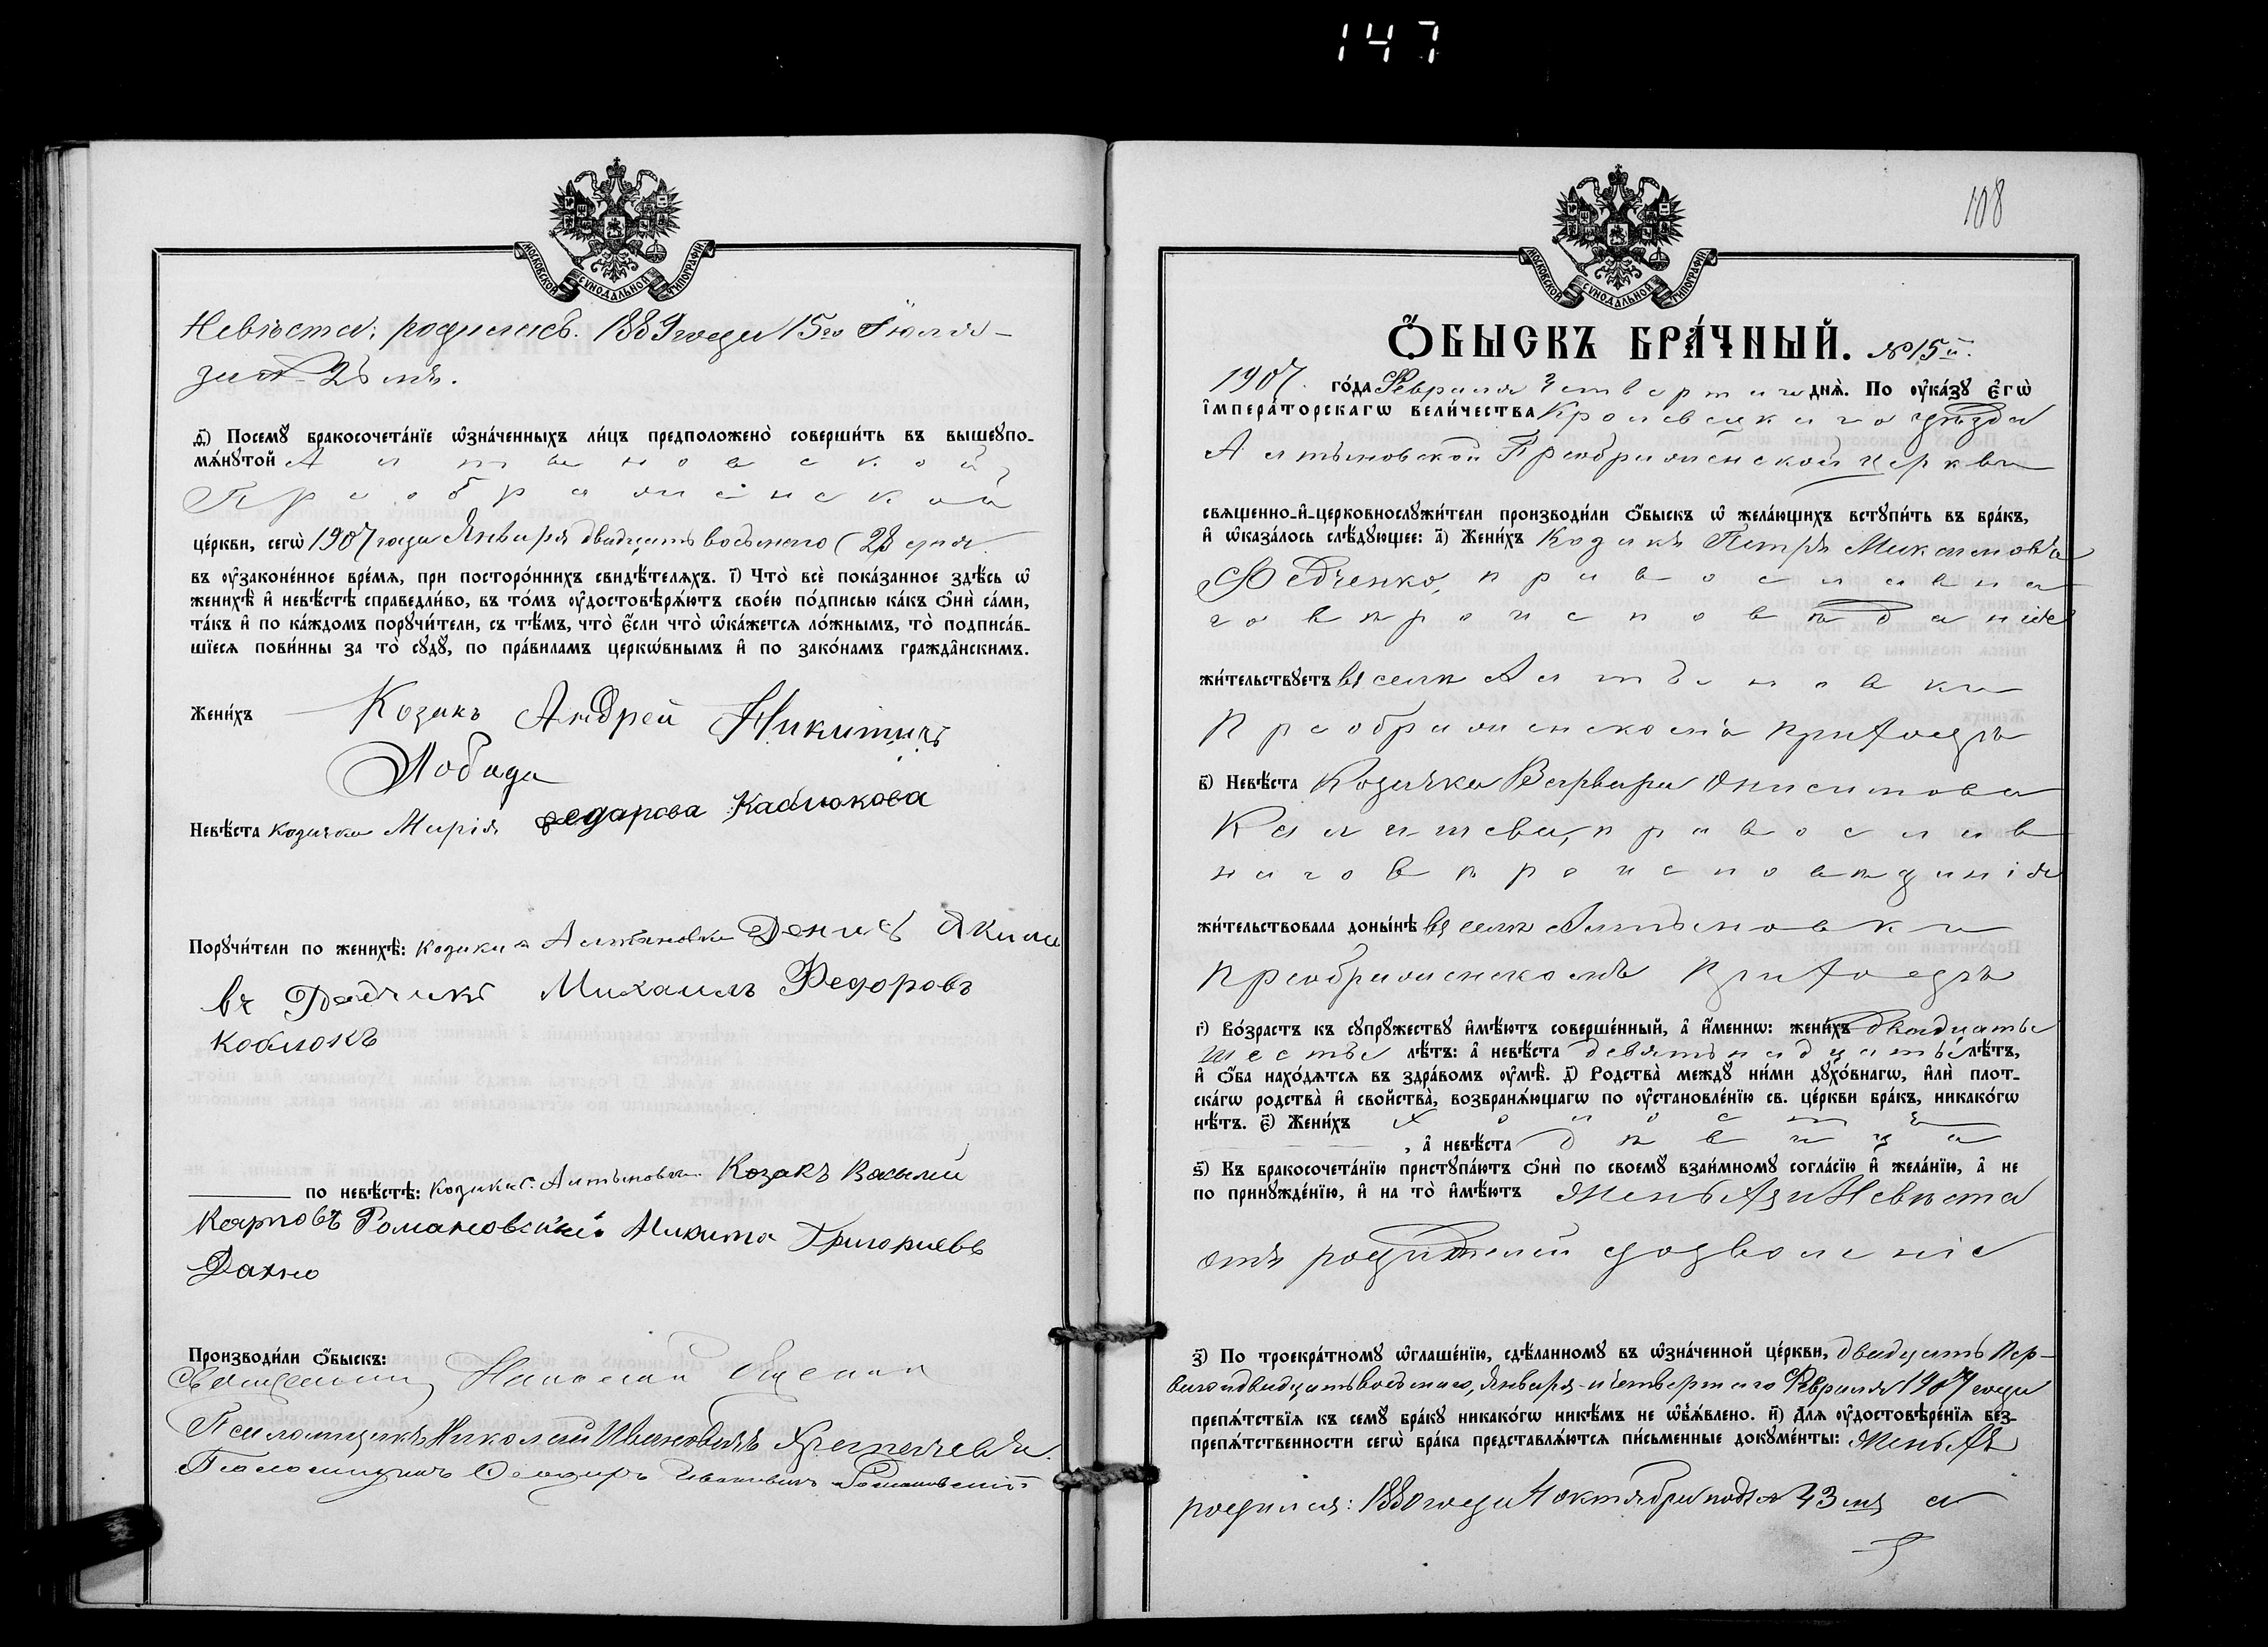 147
МОСКОВСКОЙ СУНОДАЛЬНОЙ ТИПОГРАФІИ
Невѣста: родилась. 1889 года 15го Іюля –
за № 26 мъ.
д҃) Посемꙋ бракосочета́нїе ѡ҆зна́ченныхъ ли́цъ предположено̀ соверши́ть въ вышеꙋпо-
мѧ́нꙋтой Алтыновской
Преображенской
це́ркви, сегѡ̀ 1907 года Января двадцать восьмого (28 дня
въ ᲂу҆законе́нное вре́мѧ, при посторо́ннихъ свидѣ́телѧхъ. і҃) Что̀ всѐ пока́занное здѣ́сь ѡ҆
женихѣ̀ и҆ невѣ́стѣ справедли́во, въ то́мъ ᲂу҆достовѣрѧ́ютъ свое́ю по́дписью ка́къ ѻ҆нѝ са́ми,
та́къ и҆ по ка́ждомъ порꙋчи́тели, съ тѣ́мъ, что̀ є҆́сли что̀ ѡ҆ка́жетсѧ ло́жнымъ, то̀ подписа́в-
шїесѧ пови́нны за то̀ сꙋдꙋ̀, по пра́виламъ церко́внымъ и҆ по зако́намъ гражда̑нскимъ.
Жени́хъ Козакъ Андрей Никитичъ
Лобода
Невѣ́ста козачка Марія Федарова Каблюкова
Порꙋчи́тели по женихѣ̀: козаки с Алтыновки Денисъ Якимо
въ Михаилъ Федоровъ
Коблюкъ
по невѣ́стѣ: Козаки с. Алтыновки Козакъ Василий
Карповъ Романовский Никита Григориевъ
Дахно
Производи́ли ѻ҆́быскъ:
Священникъ Николай
Псаломщикъ Николай Ивановичъ
Псаломщикъ Ивановичъ Романовский
108
МОСКОВСКОЙ СУНОДАЛЬНОЙ ТИПОГРАФІИ
Ѻ҆́БЫСКЪ БРА́ЧНЫЙ. №15й.
1907. го́да Февраля четвертаго днѧ̀. По ᲂу҆ка́зꙋ Є҆гѡ̀
і҆мпера́торскагѡ вели́чества Кролевецкаго уѣзда
Алтыновской Преображенской церкви
свѧщенно-и҆-церковнослꙋжи́тели производи́ли ѻ҆́быскъ ѡ҆ жела́ющихъ встꙋпи́ть въ бра́къ,
и҆ ѡ҆каза́лось слѣ́дꙋющее: а҃) Жени́хъ Козакъ Петръ Максимовъ
Федченко, православна
го вѣроисповѣданія
жи́тельствꙋетъ въ селѣ Алтыновки
Преображенскомъ приходѣ
в҃) Невѣ́ста Козачка Варвара Онисимова
Калишева, православ
наго вѣроисповѣданія
жи́тельствовала доны́нѣ въ селѣ Алтыновки
Преображенскомъ приходѣ
г҃) Во́зрастъ къ сꙋпрꙋ́жествꙋ и҆мѣ́ютъ соверше́нный, а҆ и҆́меннѡ: жени́хъ двадцать
шесть лѣ́тъ: а҆ невѣ́ста девятьнадцать лѣ́тъ,
и҆ ѻ҆́ба нахо́дѧтсѧ въ здра́вомъ ᲂу҆мѣ̀. д҃) Родства̀ междꙋ̀ ни́ми дꙋхо́внагѡ, и҆лѝ плот-
ска́гѡ родства̀ и҆ свойства̀, возбранѧ́ющагѡ по ᲂу҆становле́нїю св. це́ркви бра́къ, никако́гѡ
нѣ́тъ. є҃) Жени́хъ холостъ
, а҆ невѣ́ста дѣвица
ѕ҃) Къ бракосочета́нїю пристꙋпа́ютъ ѻ҆нѝ по своемꙋ̀ взаи́мномꙋ согла́сїю и҆ жела́нїю, а҆ не
по принꙋжде́нїю, и҆ на то̀ и҆мѣ́ютъ Женихъ и Невѣста
отъ родителей дозволеніе
з҃) По троекра́тномꙋ ѡ҆глаше́нїю, сдѣ́ланномꙋ въ ѡ҆зна́ченной це́ркви, двадцать пер-
ваго и двадцать восьмаго, Января и четвертаго Февраля 1907 года
препѧ́тствїѧ къ семꙋ̀ бра́кꙋ никако́гѡ никѣ́мъ не ѡ҆б̾ѧ́влено. и҃) Длѧ ᲂу҆достовѣре́нїѧ без-
препѧ́тственности сегѡ̀ бра́ка представлѧ́ютсѧ пи́сьменные докꙋме́нты: Женихъ
родился: 1880 года 4 октября подъ № 43 мъ а